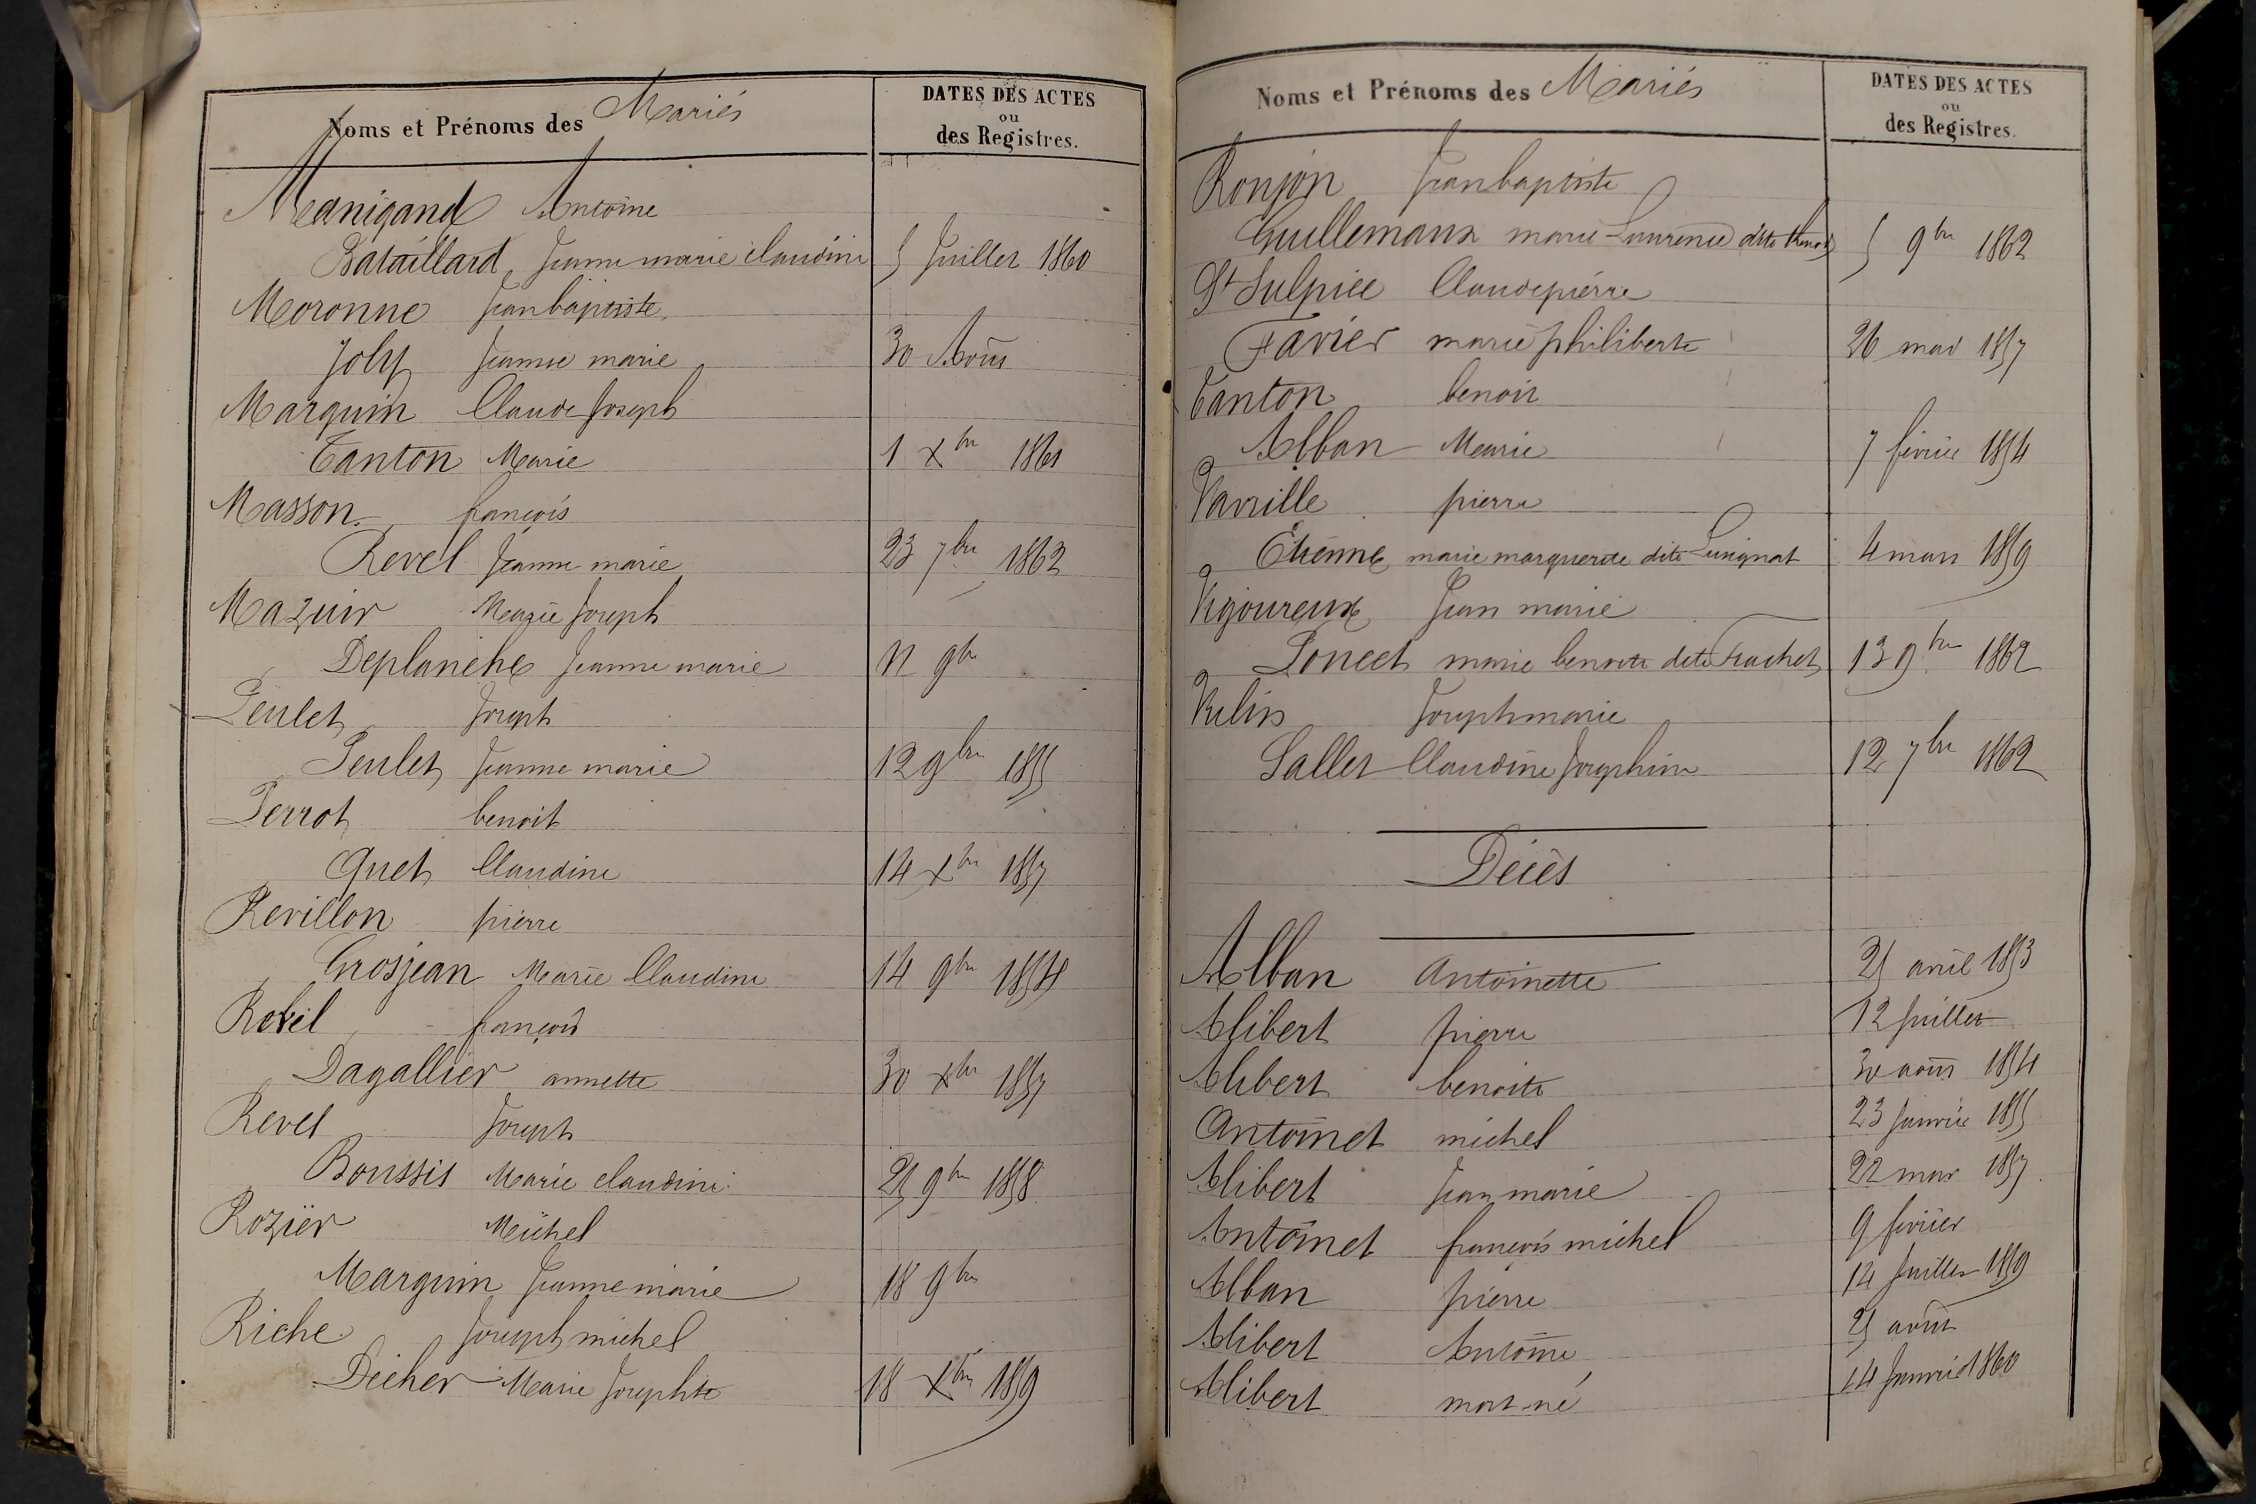 Noms et Prénoms des Mariés
DATES DES ACTES
ou
des Registres.
Manigand Antoine
Bataillard Jeanne marie claudine 5 Juillet 1860
Moronne Jean baptiste
Joly Jeanne marie 30 Août
Marquin Claude Joseph
Tanton Marie 1 Xbre 1861
Masson françois
Revel Jeanne marie 23 7bre 1862
Mazuir Marie Joseph
Deplanche Jeanne marie 11 9bre
Peulet Joseph
Peulet Jeanne marie 12 9bre 1855
Perrot benoit
Quet Claudine 14 Xbre 1857
Revillon pierre
Grosjean Marie Claudine 14 9bre 1854
françois
Dagallier annette 30 Xbre 1857
Revel Joseph
Boussis Marie claudine 25 9bre 1858
Rozier Michel
Marquin Jeanne marie 18 9bre
Riche Joseph michel
Marie Josephte 18 Xbre 1859
Noms et Prénoms des Mariés
DATES DES ACTES
ou
des Registres.
Ronjon Jean baptiste
Guillemaux marie Laurence dite 5 9bre 1862
St Sulpice Claude pierre
Favier marie philiberte 26 mai 1857
Tanton benoit
Alban Marie 7 février 1854
Vavrille pierre
Etienne marie marguerite dite Luvignat 4 mars 1859
Vigoureux Jean marie
Poncet marie benoite dite Trachet 13 9bre 1862
Joseph marie
Sallet Claudine Josephine 12 7bre 1862
Décès
Alban Antoinette 25 avril 1853
Alibert pierre 12 Juillet
Alibert benoite 30 août 1854
Antoinet michel 23 Janvier 1855
Alibert Jean marie 22 mai 1857
Antoinet françois michel 9 février
Alban pierre 14 Juillet 1859
Alibert Antoine 25 août
Alibert mort-né 14 Janvier 1860